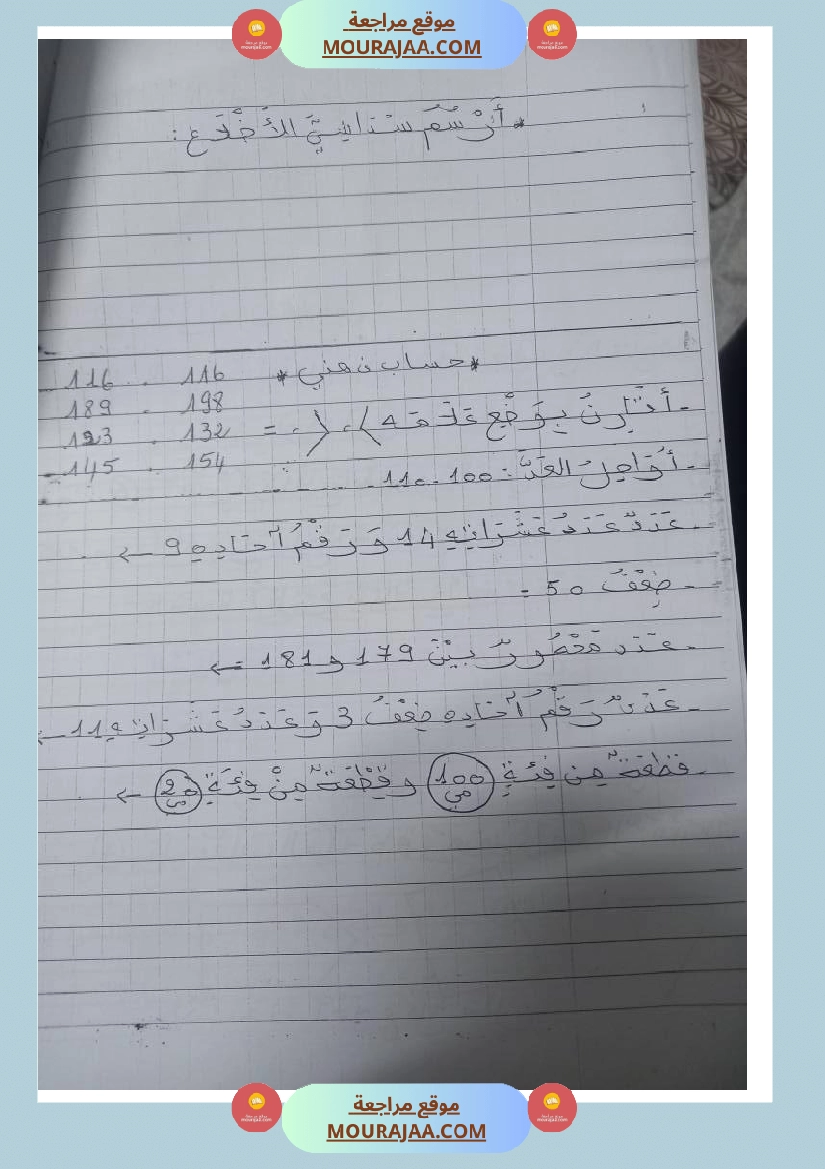 موقع مراجعة
MOURAJAA.COM
* أَرْسُمُ سُدَاسِيَّ الأَضْلَاعِ :
* حساب ذهني *
116 . 116
- أُقَارِنُ بِوَضْعِ عَلَامَة > . < . =
189 . 198
123 . 132
- أُوَاصِلُ العَدَّ : 100 . 110
145 . 154
- عَدَدٌ عَدَدُ عَشَرَاتِهِ 14 وَ رَقْمُ آحَادِهِ 9 ←
- ضِعْفُ 50 =
- عدد مَحْصُورٌ بَيْنَ 179 و 181 = ←
- عَدَدٌ رَقْمُ آحَادِهِ ضِعْفُ 3 وَ عَدَدُ عَشَرَاتِهِ 11 ←
- قطعَةٌ مِن فِئَةِ 100 مي و قِطْعَةٌ مِنْ فِئَةِ 20 مي ←
موقع مراجعة
MOURAJAA.COM